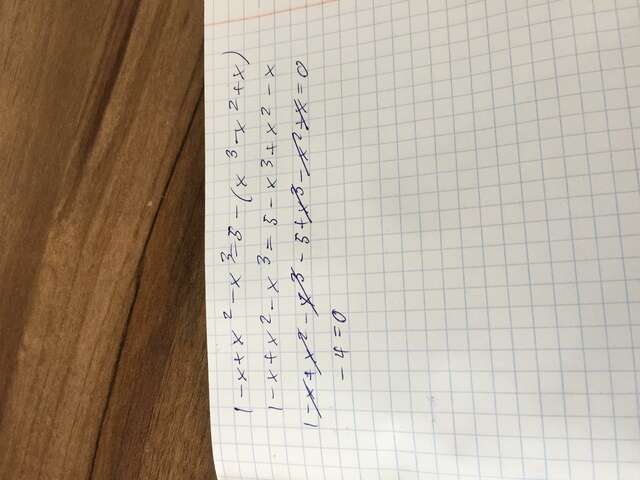 1 - x + x² - x³ = 5 - (x³ - x² + x)
1 - x + x² - x³ = 5 - x³ + x² - x
1 - x + x² - x³ - 5 + x³ - x² + x = 0
- 4 = 0